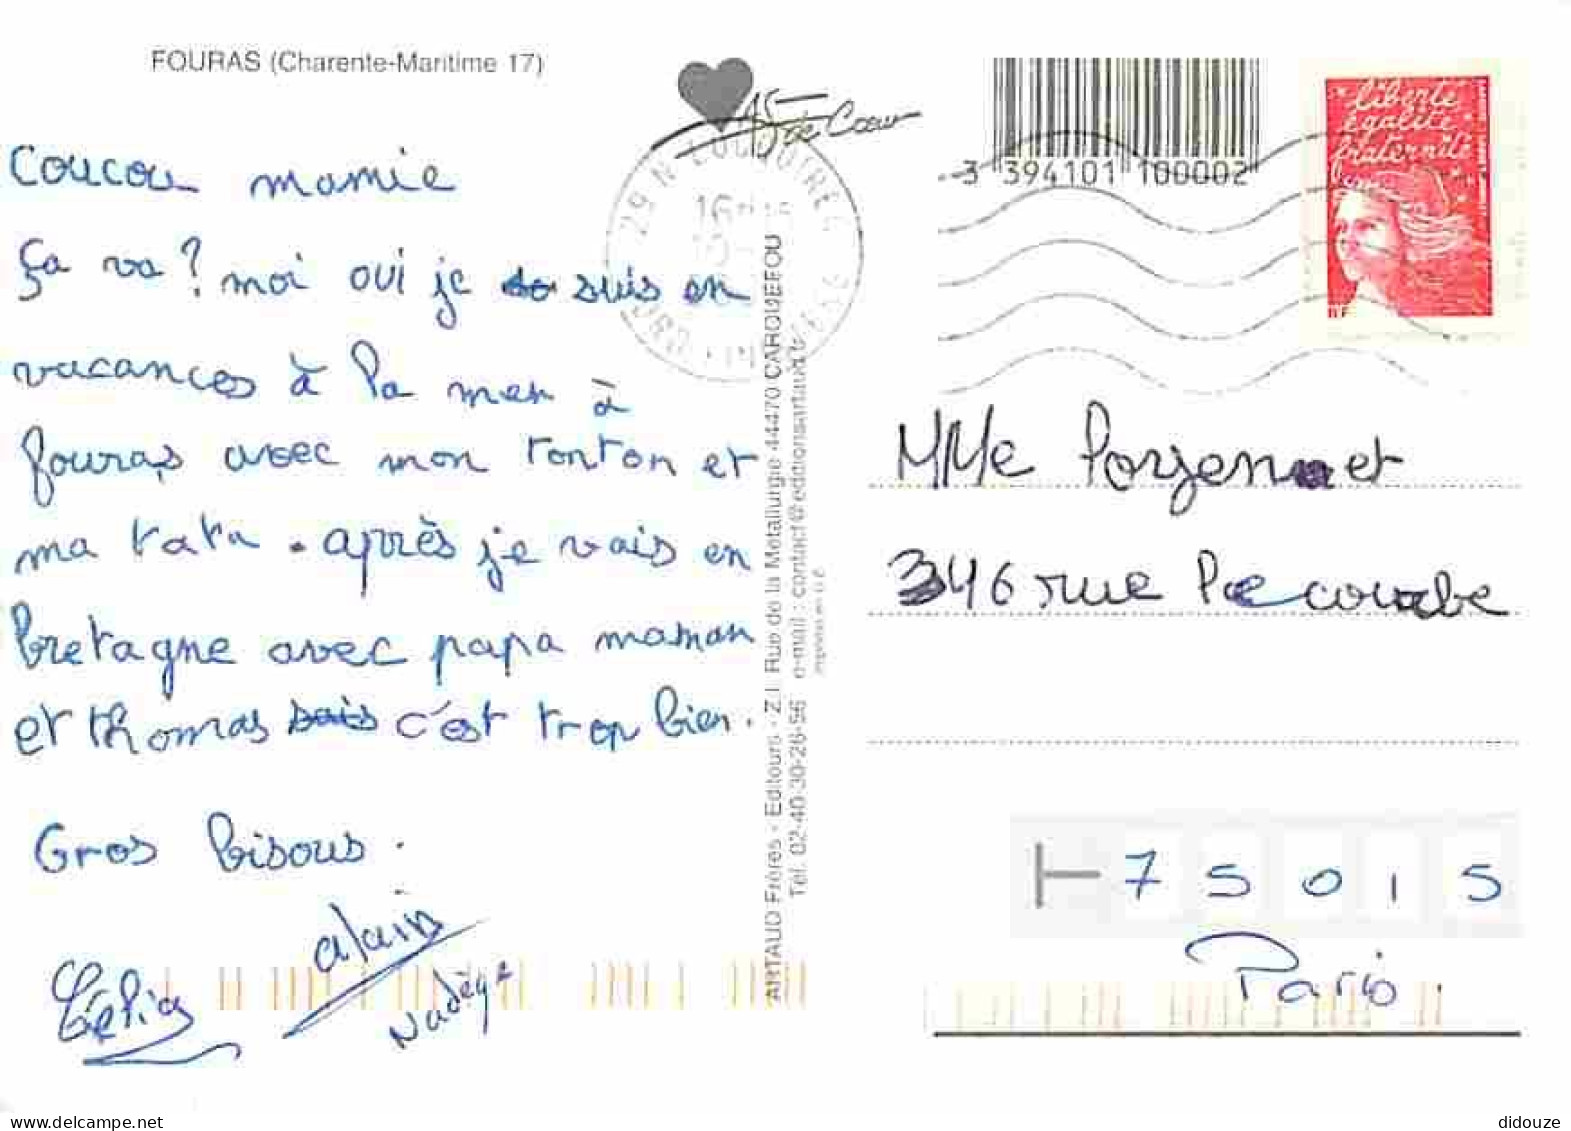 FOURAS (Charente-Maritime 17)
As de Cœur
coucou mamie
ça va? moi oui je suis en
vacances à la mer à
fouras avec mon tonton et
ma tata. après je vais en
bretagne avec papa maman
et thomas c'est trop bien.
Gros bisous.
alain
Nadège
ARTAUD Frères - Editeurs - Z.I. Rue de la Métallurgie 44470 CARQUEFOU
Tél. 02-40-30-26-56 e-mail : contact@editionsartaud.fr
3 394101 100002
liberté
égalité
fraternité
MMe
346 rue Lecourbe
75015
Paris
didouze